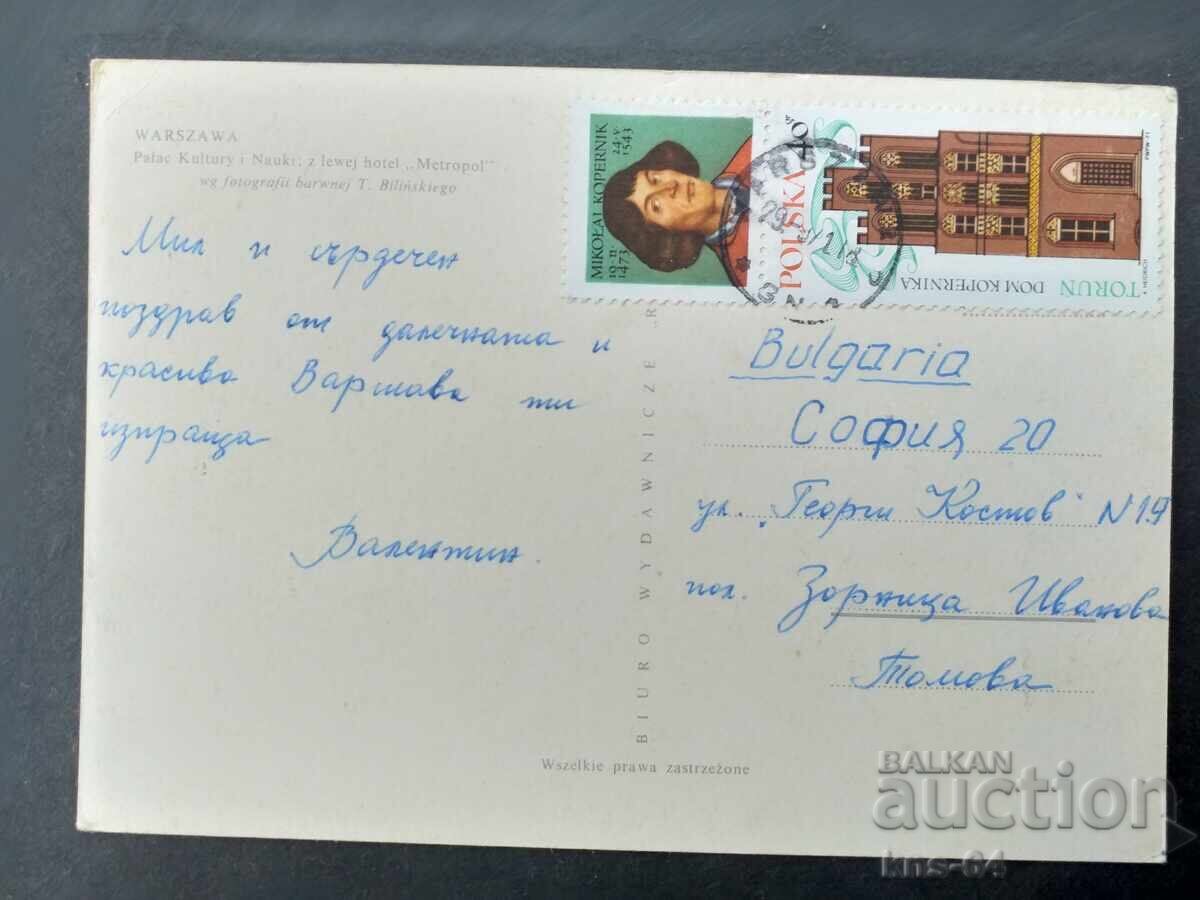 WARSZAWA
Pałac Kultury i Nauki; z lewej hotel „Metropol”
wg fotografii barwnej T. Bilińskiego
Мил и сърдечен
поздрав от далечната и
красива Варшава ти
изпраща
Валентин.
BIURO WYDAWNICZE „R
Wszelkie prawa zastrzeżone
MIKOŁAJ KOPERNIK
19·II 1473
24·V· 1543
POLSKA 40 gr
TORUŃ
DOM KOPERNIKA
A. HEIDRICH
Bulgaria
София 20
ул. „Георги Костов" N 19
пол. Зорница Иванова
Томова
BALKAN
auction
kns-64